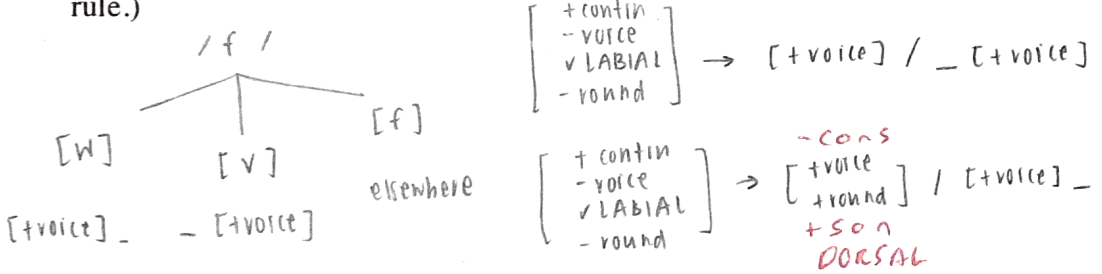 rule.)
/ f /
[w]
[v]
[f]
elsewhere
[+voice] _
_ [+voice]
[+contin
- voice
✓ LABIAL
- round] → [+voice] / _ [+voice]
- cons
[+ contin
- voice
✓ LABIAL
- round] → [+voice
+round] / [+voice] _
+ son
DORSAL